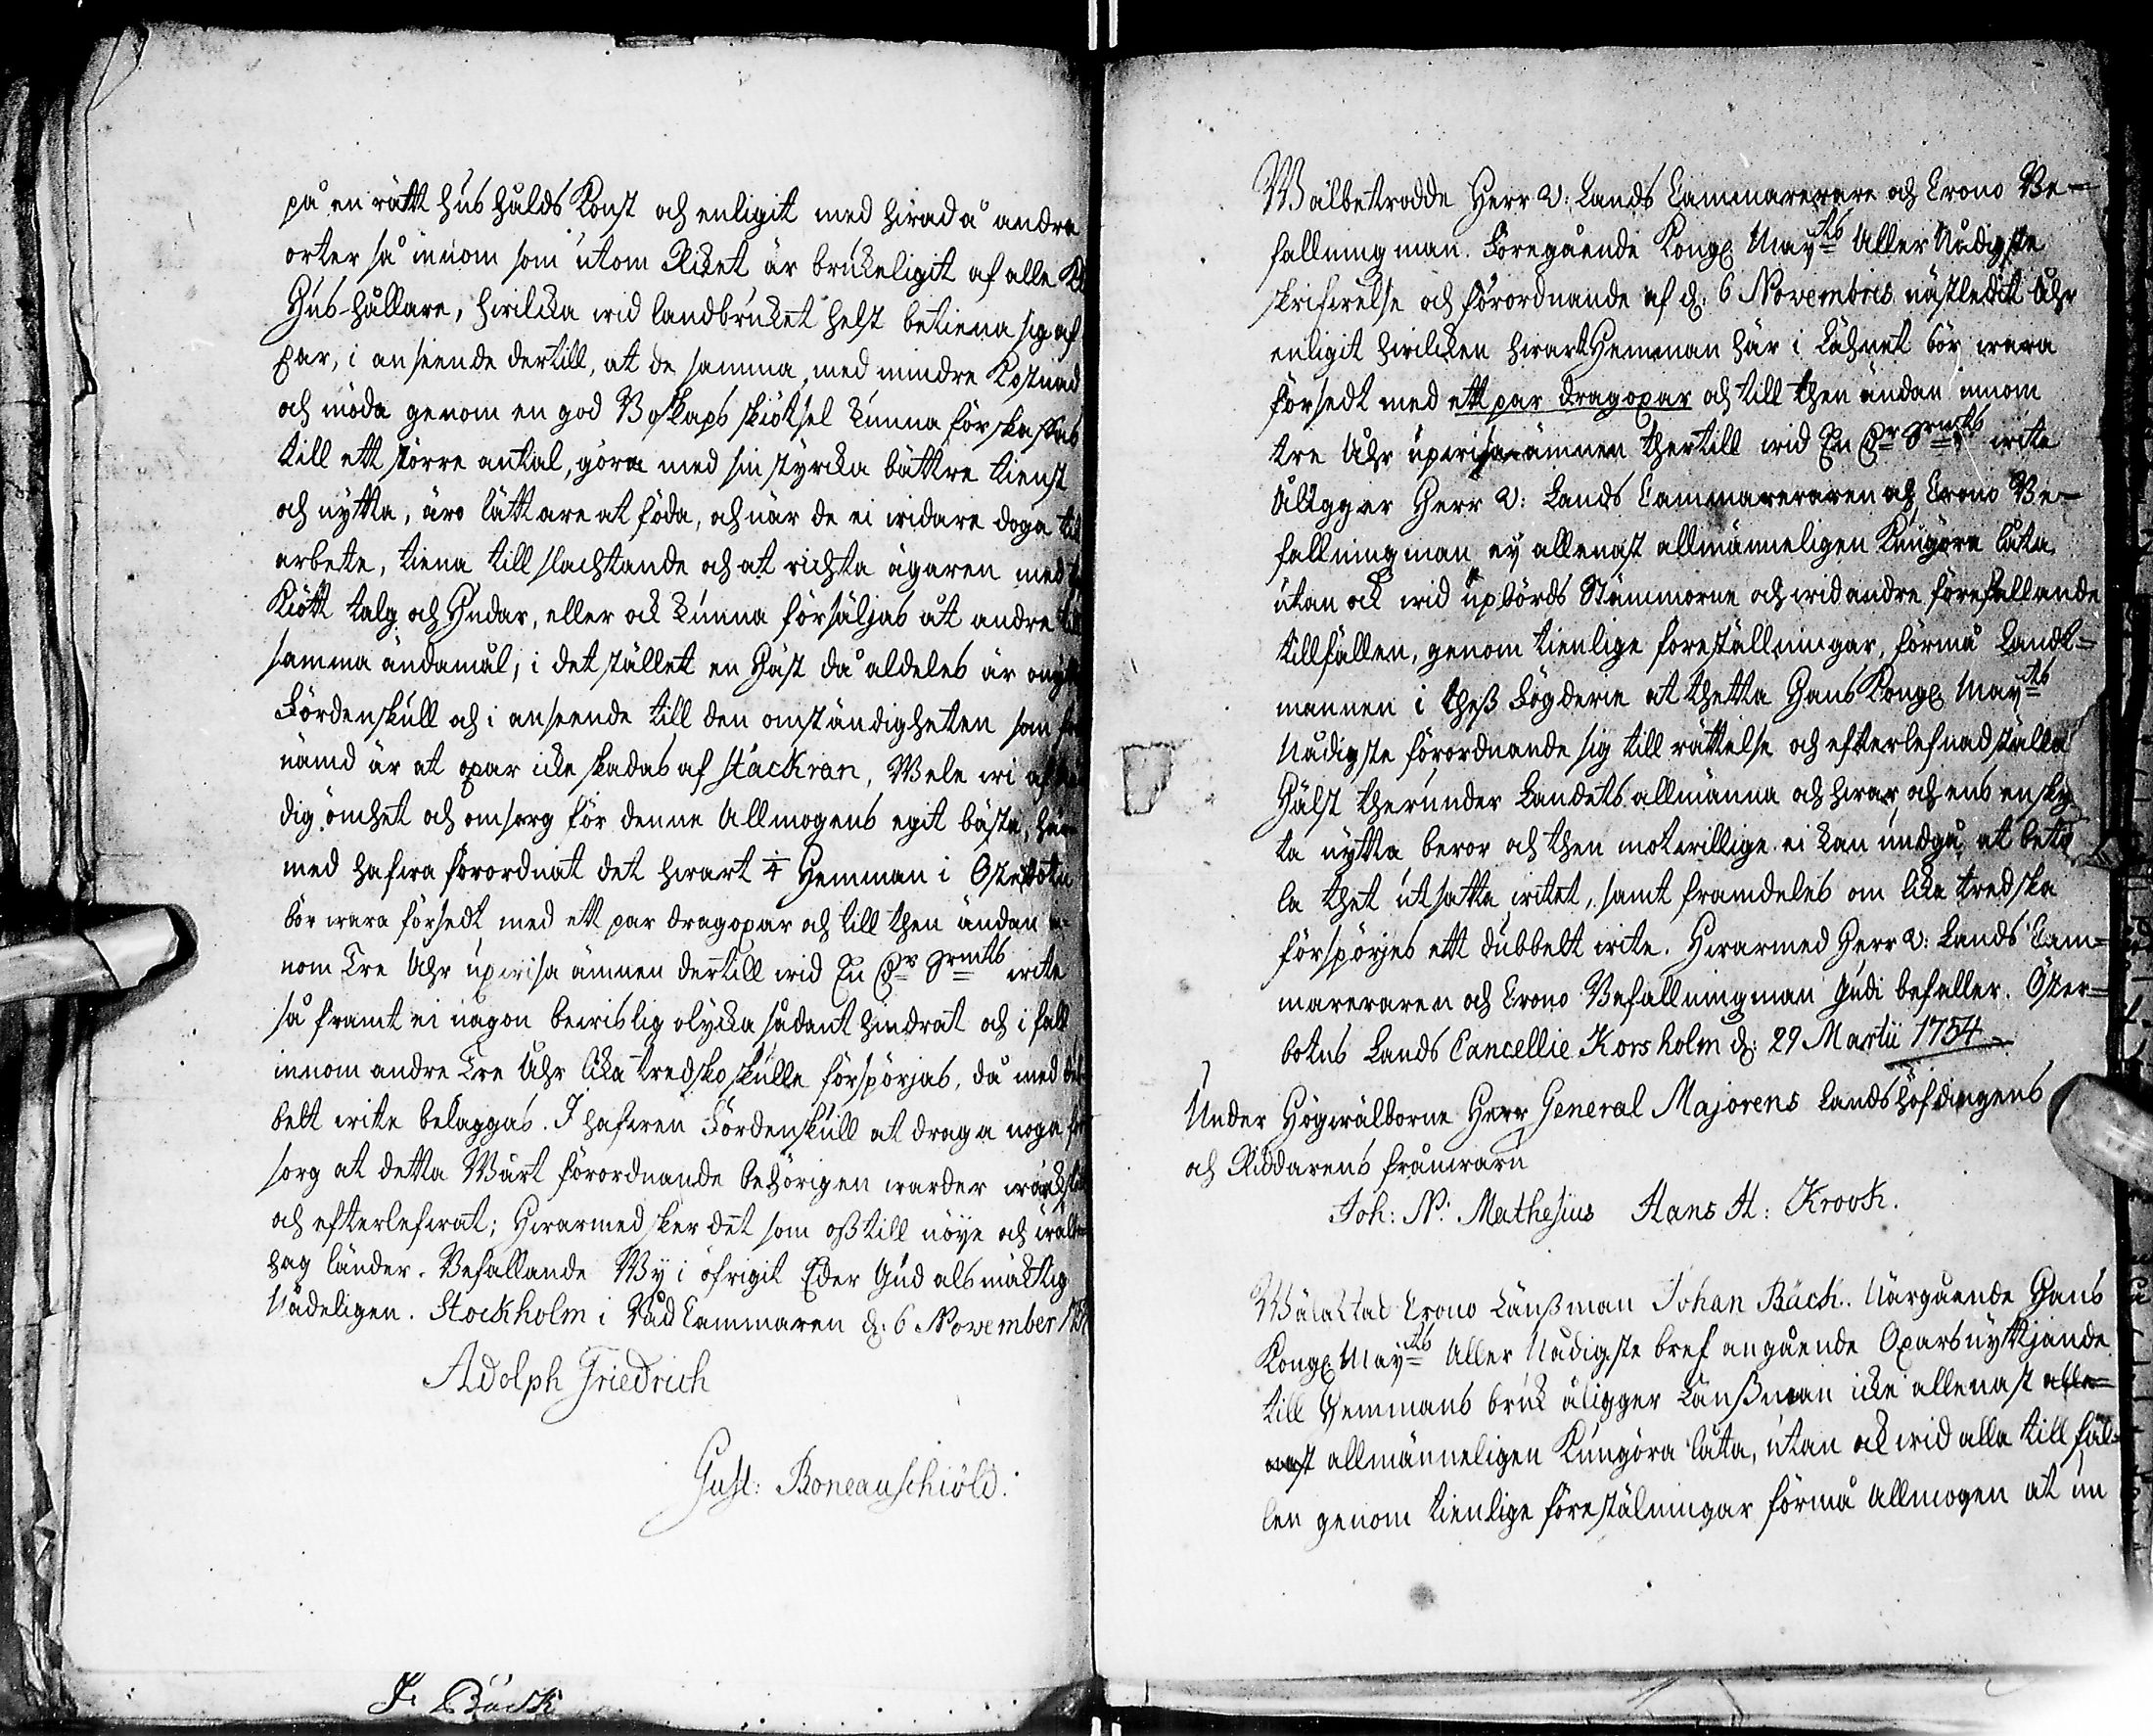 på en rätt hushålds Konst och enligit med hvad å andra
orter så innom som utom Riket är brukeligit af alle
Hus-hållare, hvilcka vid landbruket helst betiena sig af
oxar, i anseende dertill, at de samma, med mindre Kostnad
och möda genom en god Boskaps skiötsel kunna förskaffas
till ett större antal, göra med sin styrcka bättre tienst
och nytta, äro lättare at föda, och när de ei vidare doga til
arbete, tiena till slachtande och at richta ägaren med
Kiött talg och Hudar, eller ock kunna försäljas åt andre till
samma ändamål; i det stället en Häst då aldeles är
Fördenskull och i anseende till den omständigheten som
nämd är at oxar icke skadas af stäckran, Wele vi af
dig ömhet och omsorg för denne Allmogens egit bästa, här
med hafva förordnat det hvart ¼ Hemman i Österbotn
bör vara försedt med ett par dragoxar och till then ändan in-
nom Tre Åhr upvisa ämnen dertill vid En Dr Srmts vite
så framt ei någon bevislig olycka sådant hindrat och i fall
innom andre Tre Åhr lika tredsko skulle förspörjas, då med dub-
belt vite beläggas. I hafven Fördenskull at draga noga för-
sorg at detta Wårt förordnande behörigen varder värckstält
och efterlefvat; Hvarmed sker det som oss till nöye och välbe-
hag länder. Befallande Wÿ i öfrigit Eder Gud alsmächtig
Nådeligen. Stockholm i Råd Cammaren d: 6 November
Adolph Friedrich
Gust: Boneauschiöld.
J: Bäck
Wälbetrodde Herr V: Lands Cammererare och Crono Be-
fallningman. Föregående Kongl Mayts Aller Nådigste
skrifvelse och förordnande af d: 6 Novembris nästledit Åhr
enligit hvilcken hvart Hemman här i Lähnet bör vara
försedt med ett par dragoxar och till then ändan innom
tre Åhr upvisa ämnen thertill vid En Dr Srmts vite
Åligger Herr V: Lands Cammareraren och Crono Be-
fallningman eÿ allenast allmänneligen Kungöra låta,
utan ock vid upbörds Stämmorne och vid andre förefallande
tillfällen, genom tienlige föreställningar, förmå Landt-
mannen i thess Fögderie at thetta Hans Kongl Mayts
Nådigste förordnande sig till rättelse och efterlefnad ställa
Hälst therunder Landets allmänna och hvar och ens enskÿl
ta nytta beror och then motvillige ei kan undgå at beta
la thet utsatta vitet, samt framdeles om lika tredska
förspörjes ett dubbelt vite. Hvarmed Herr V: Lands Cam-
mareraren och Crono Befallningman Gudi befaller. Öster-
botns Lands Cancellie Korsholm d: 29 Martii 1754
Under Högvälborne Herr General Majorens Landshöfdingens
och Riddarens frånvaru
Joh: N: Mathesius Hans H: Krook.
Wälaktad Crono Länssman Johan Bäck. Närgående Hans
Kongl Mayts Aller Nådigste bref angående Oxars nyttjande
till Hemmans bruk åligger Länssman icke allenast alle-
nast allmänneligen Kungöra låta, utan ock vid alla tillfäl-
len genom tienlige förestälningar förmå Allmogen at in